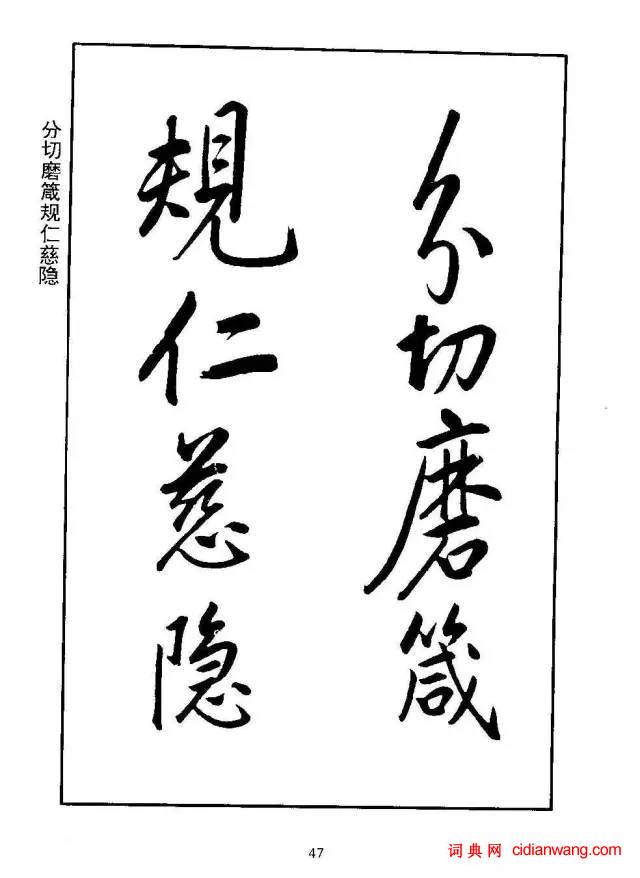 分切磨箴
规仁慈隐
分切磨箴规仁慈隐
47
词典网 cidianwang.com